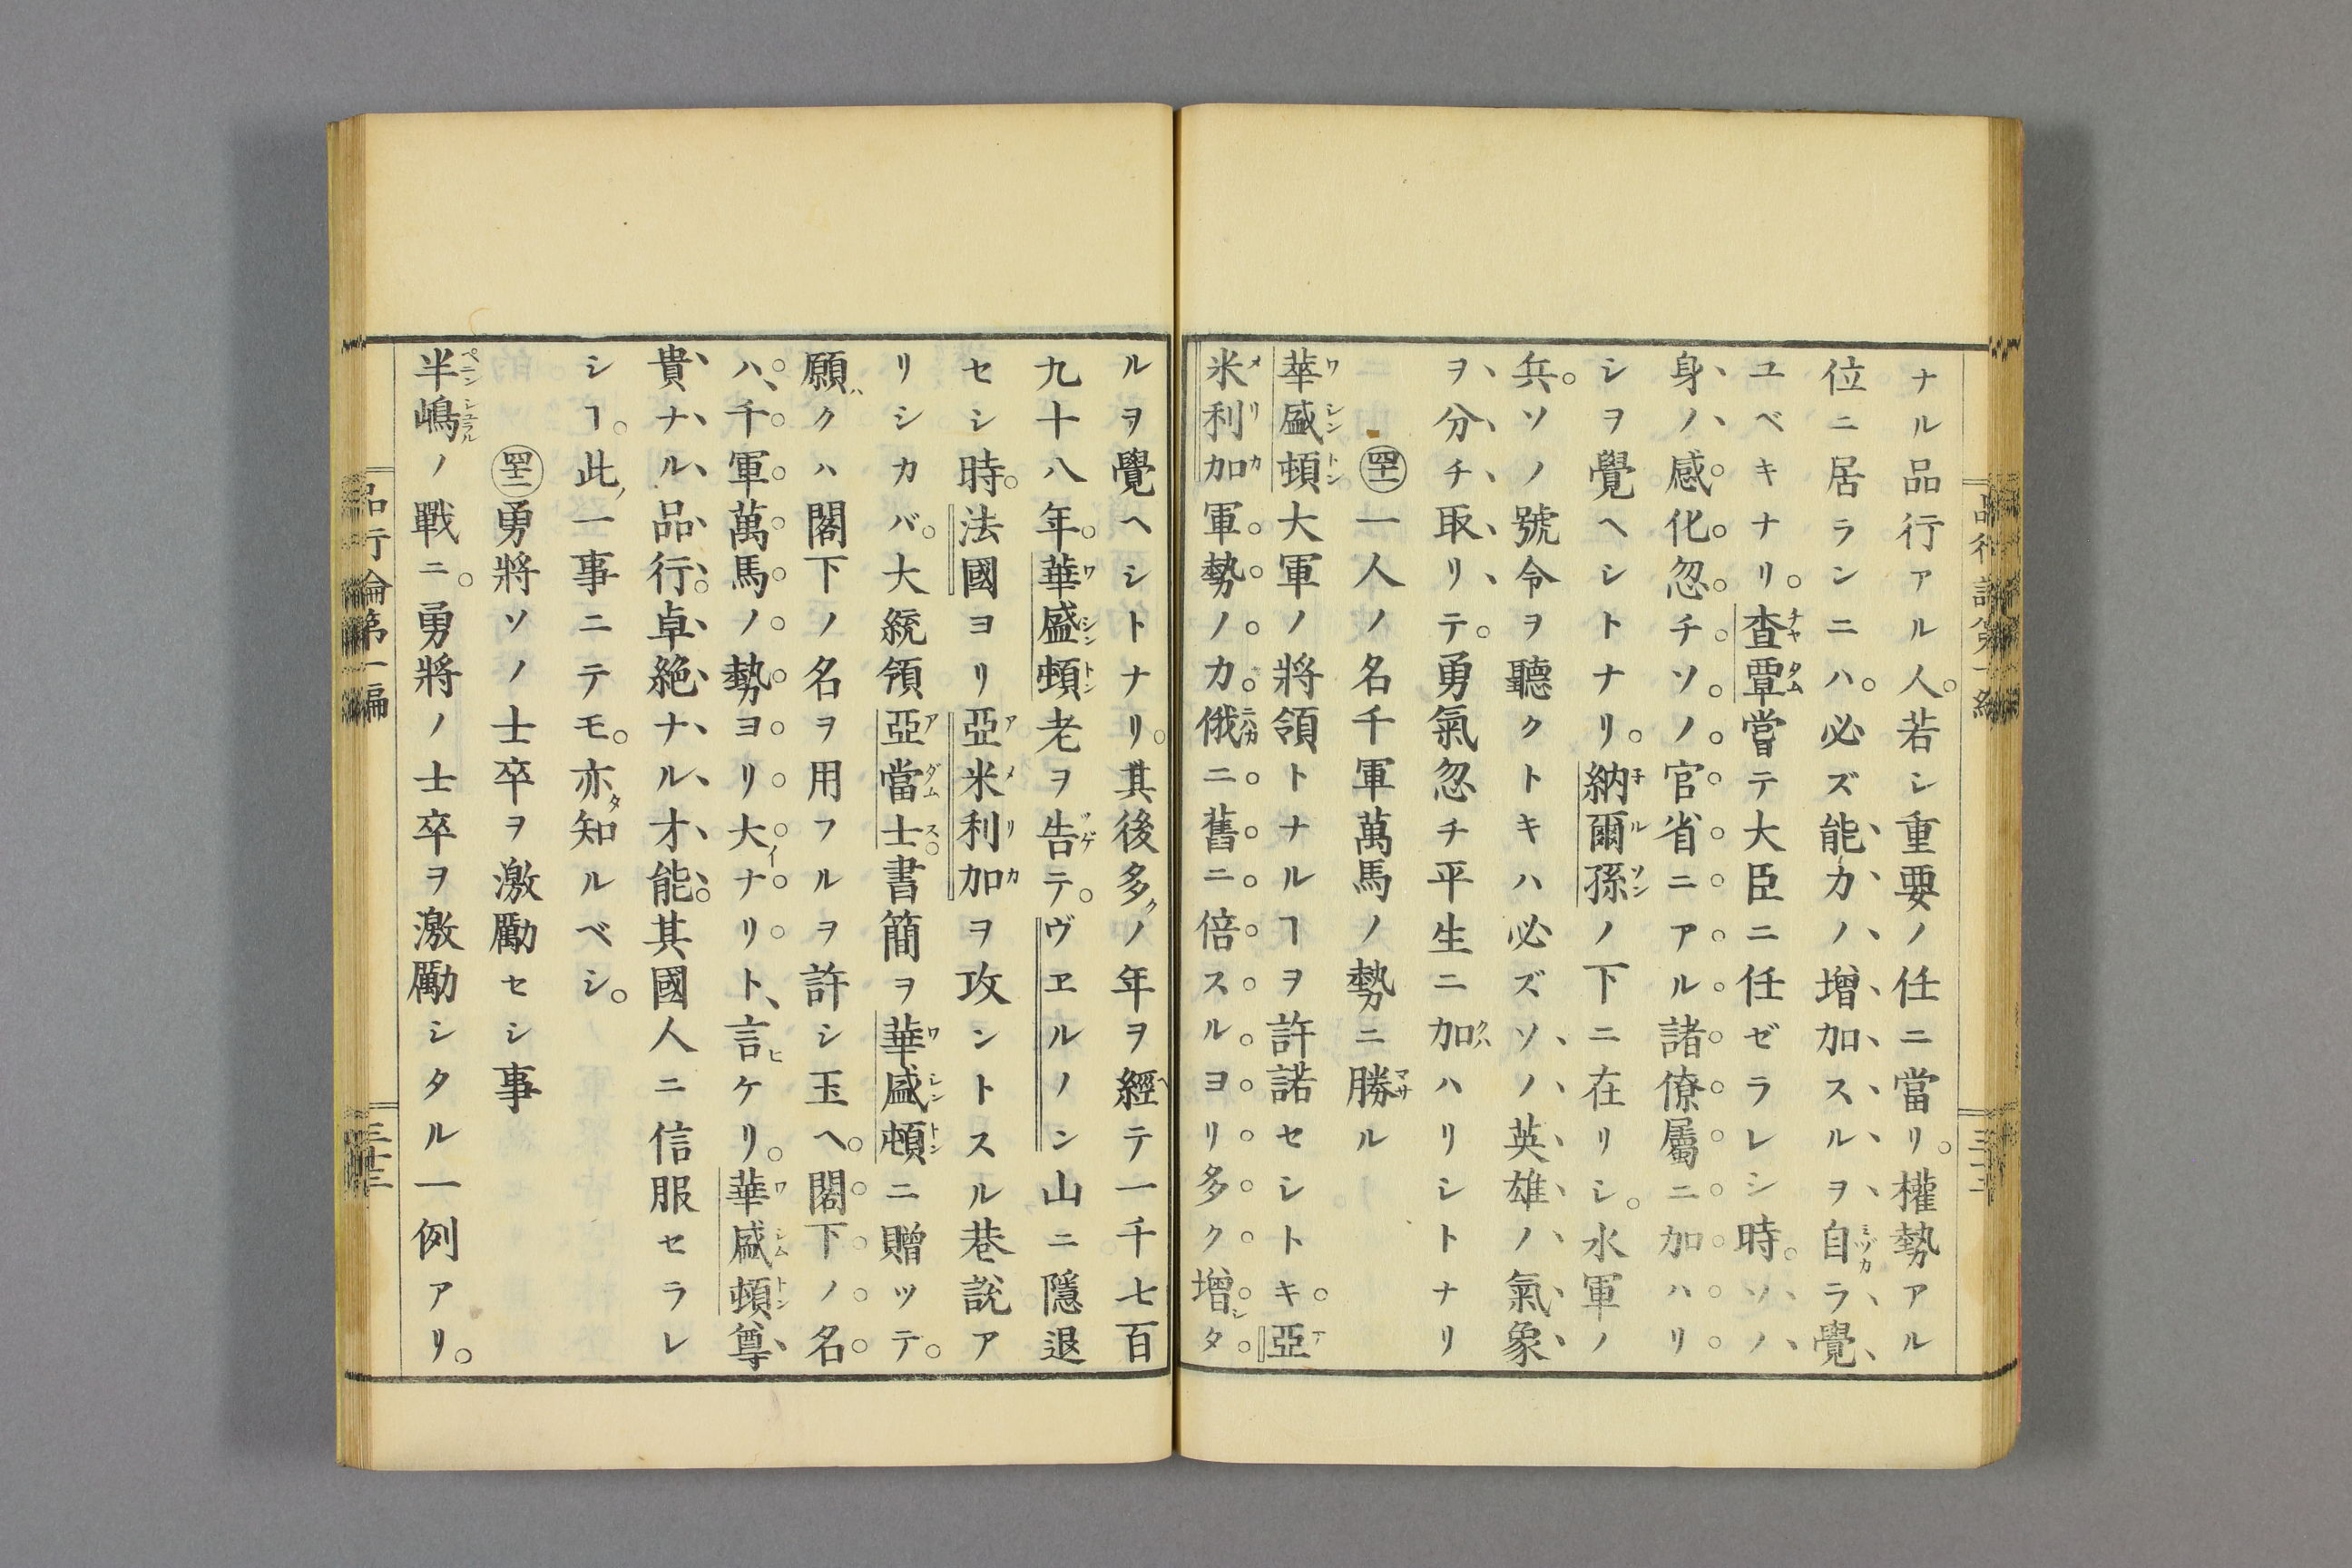 ナル品行アル人。若シ重要ノ任ニ當リ。權勢アル
位ニ居ランニハ。必ズ能力ノ增加スルヲ自ラ覺
ユベキナリ。查覃嘗テ大臣ニ任ゼラレシ時。ソノ
身ノ感化忽チソノ官省ニアル諸僚屬ニ加ハリ
シヲ覺ヘシトナリ。納爾孫ノ下ニ在リシ。水軍ノ
兵。ソノ號令ヲ聽クトキハ必ズソノ英雄ノ氣象
ヲ分チ取リテ。勇氣忽チ平生ニ加ハリシトナリ
㊶一人ノ名千軍萬馬ノ勢ニ勝ル
華盛頓大軍ノ將領トナルヿヲ許諾セシトキ。亞
米利加軍勢ノカ俄ニ舊ニ倍スルヨリ多ク增タ
ルヲ覺ヘシトナリ。其後多ノ年ヲ經テ一千七百
九十八年。華盛頓老ヲ告テ。ヴヱルノン山ニ隱退
セシ時。法國ヨリ亞米利加ヲ攻ントスル巷說ア
リシカバ。大統領亞當士書簡ヲ華盛頓ニ贈ツテ。
願クハ閣下ノ名ヲ用フルヲ許シ玉ヘ。閣下ノ名
ハ千軍萬馬ノ勢ヨリ大ナリト言ケリ。華盛頓尊
貴ナル品行。卓絶ナル才能。其國人ニ信服セラレ
シヿ。此一事ニテモ。亦知ルベシ。
㊷勇將ソノ士卒ヲ激勵セシ事
半嶋ノ戰ニ。勇將ノ士卒ヲ激勵シタル一例アリ。
品行論第一編
三十三